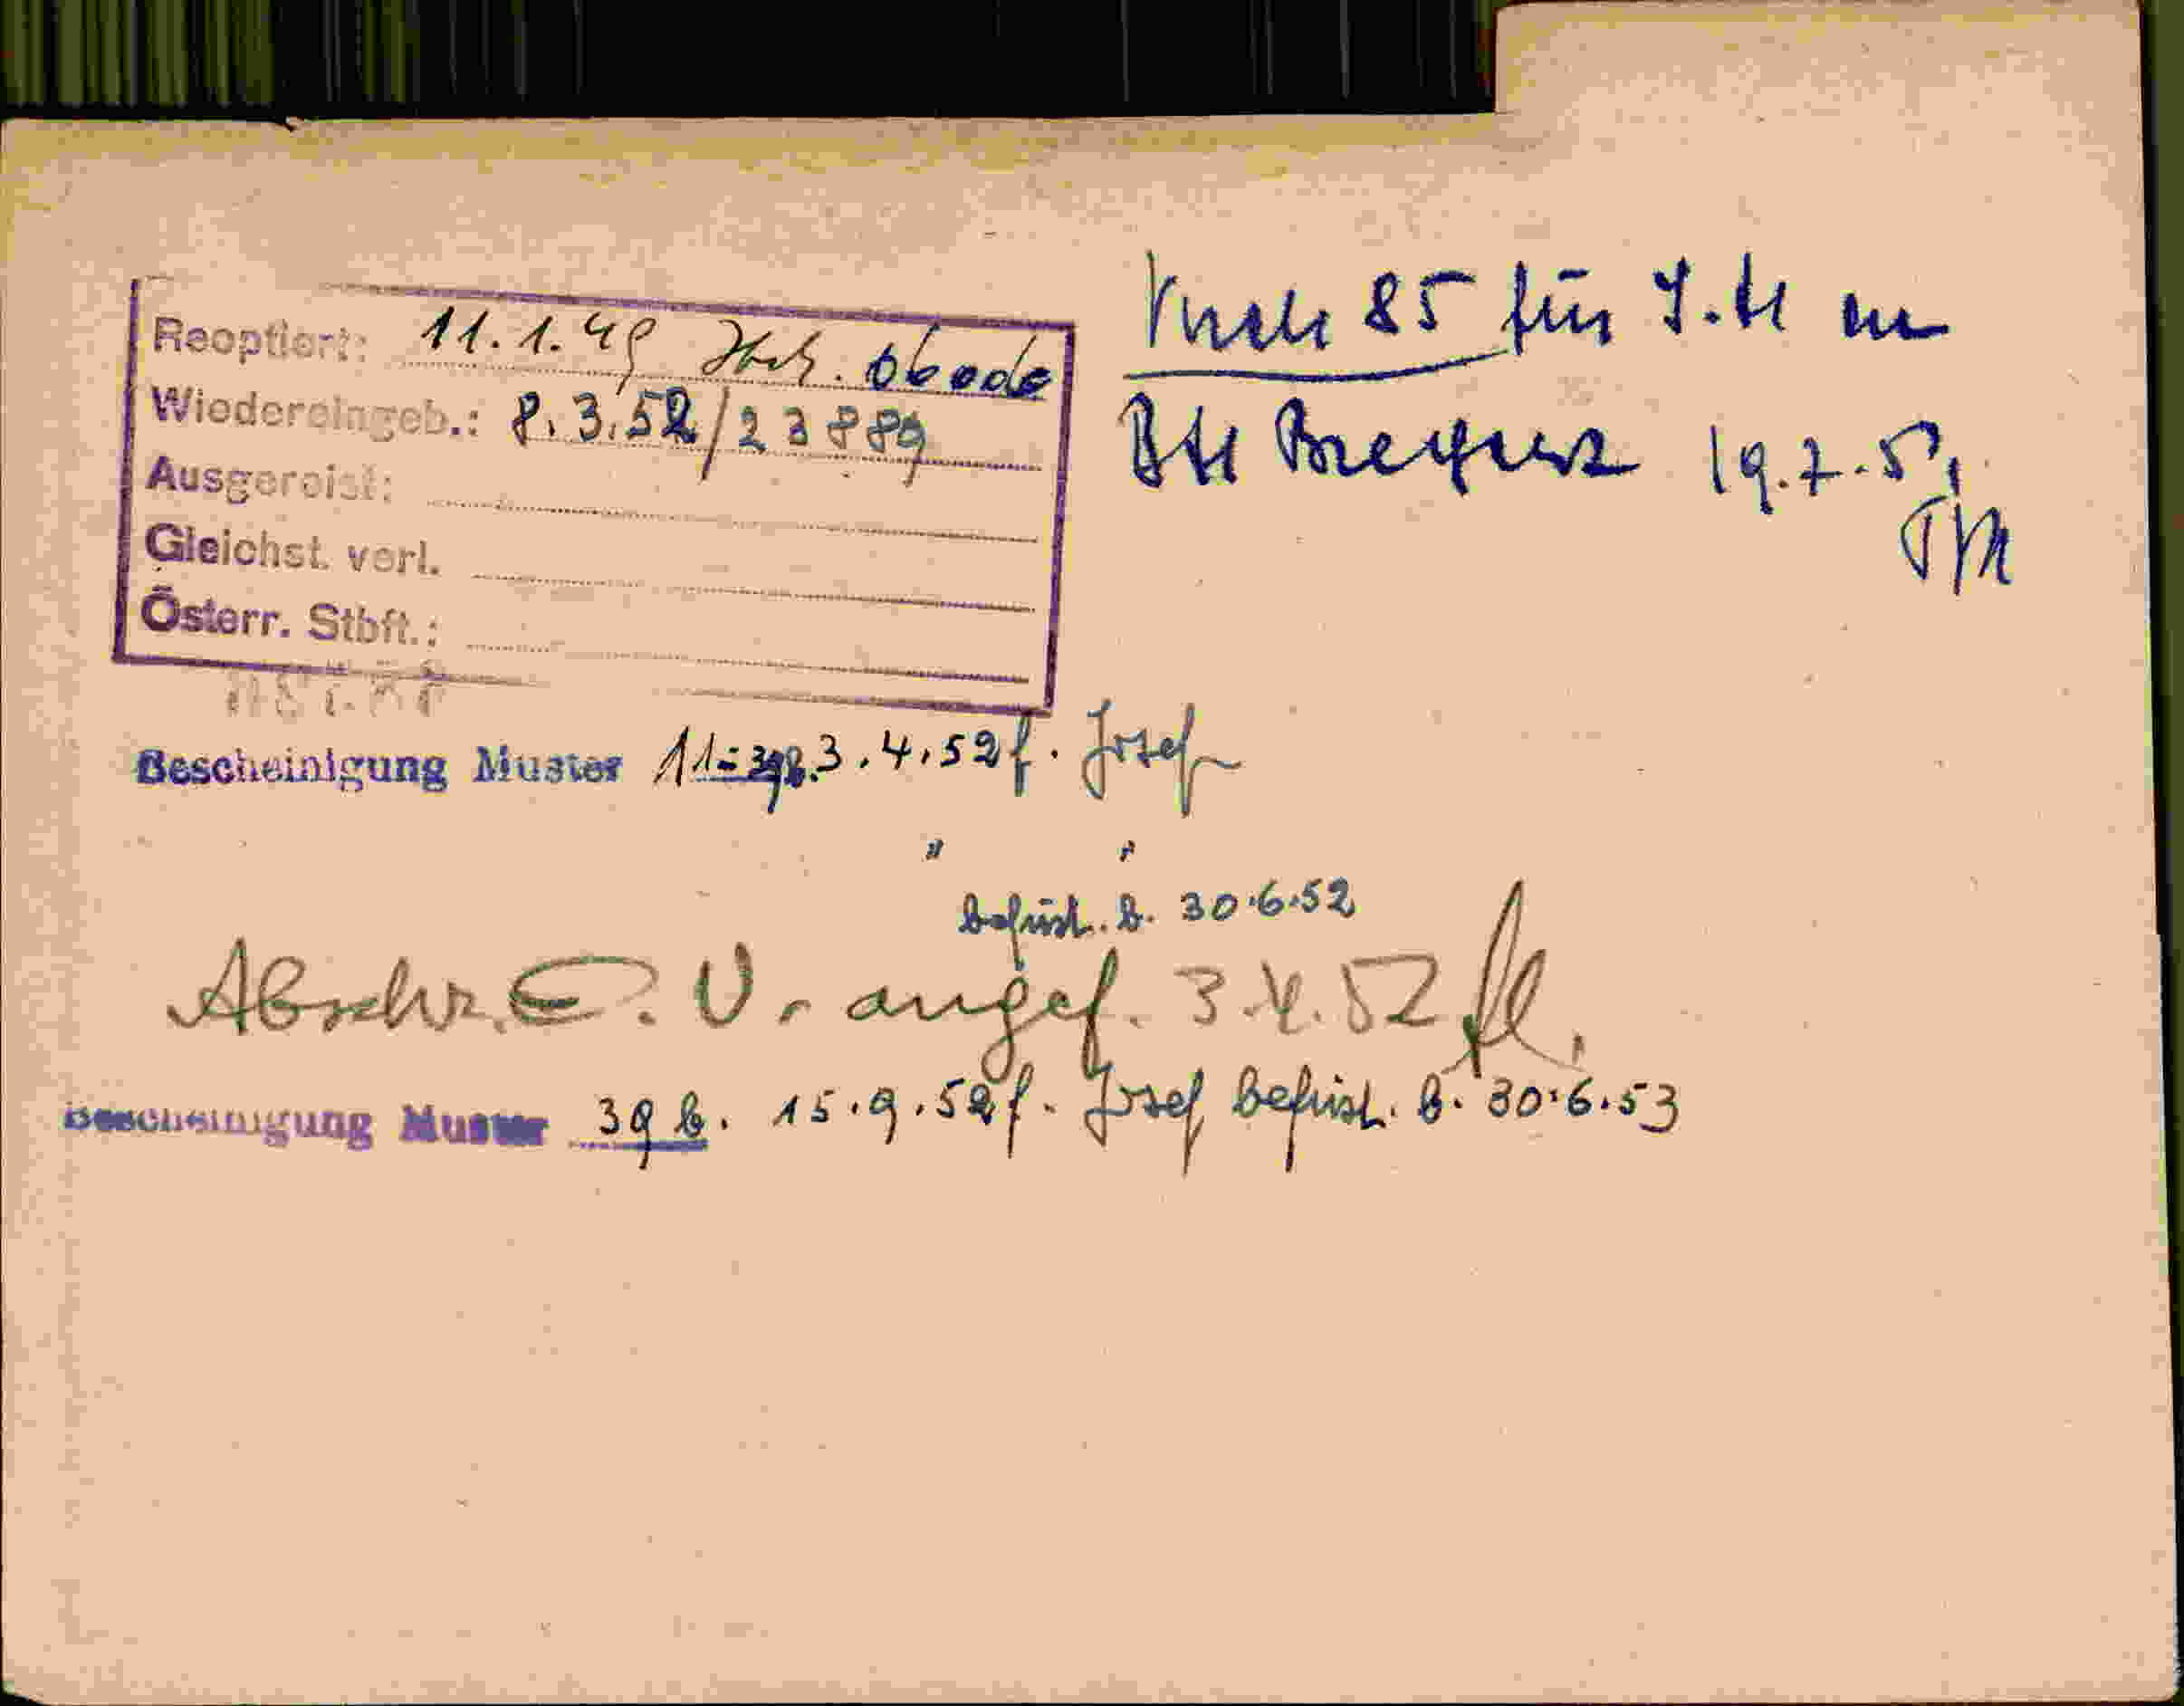 Reoptiert: 11.1.49
Wiedereingeb.: 8.3.52/23889
Ausgereist:
Gleichst. verl.
Österr. Stbft.:
85 für J.H in
BH Bregenz 19.7.51
Bescheinigung Muster 11 = 39b. 3.4.52 f. Josef
" "
befrist. b. 30.6.52
Abschr. E. V. angef. 3.4.52
Bescheinigung Muster 39 b. 15.9.52 f. Josef befrist. b. 30.6.53